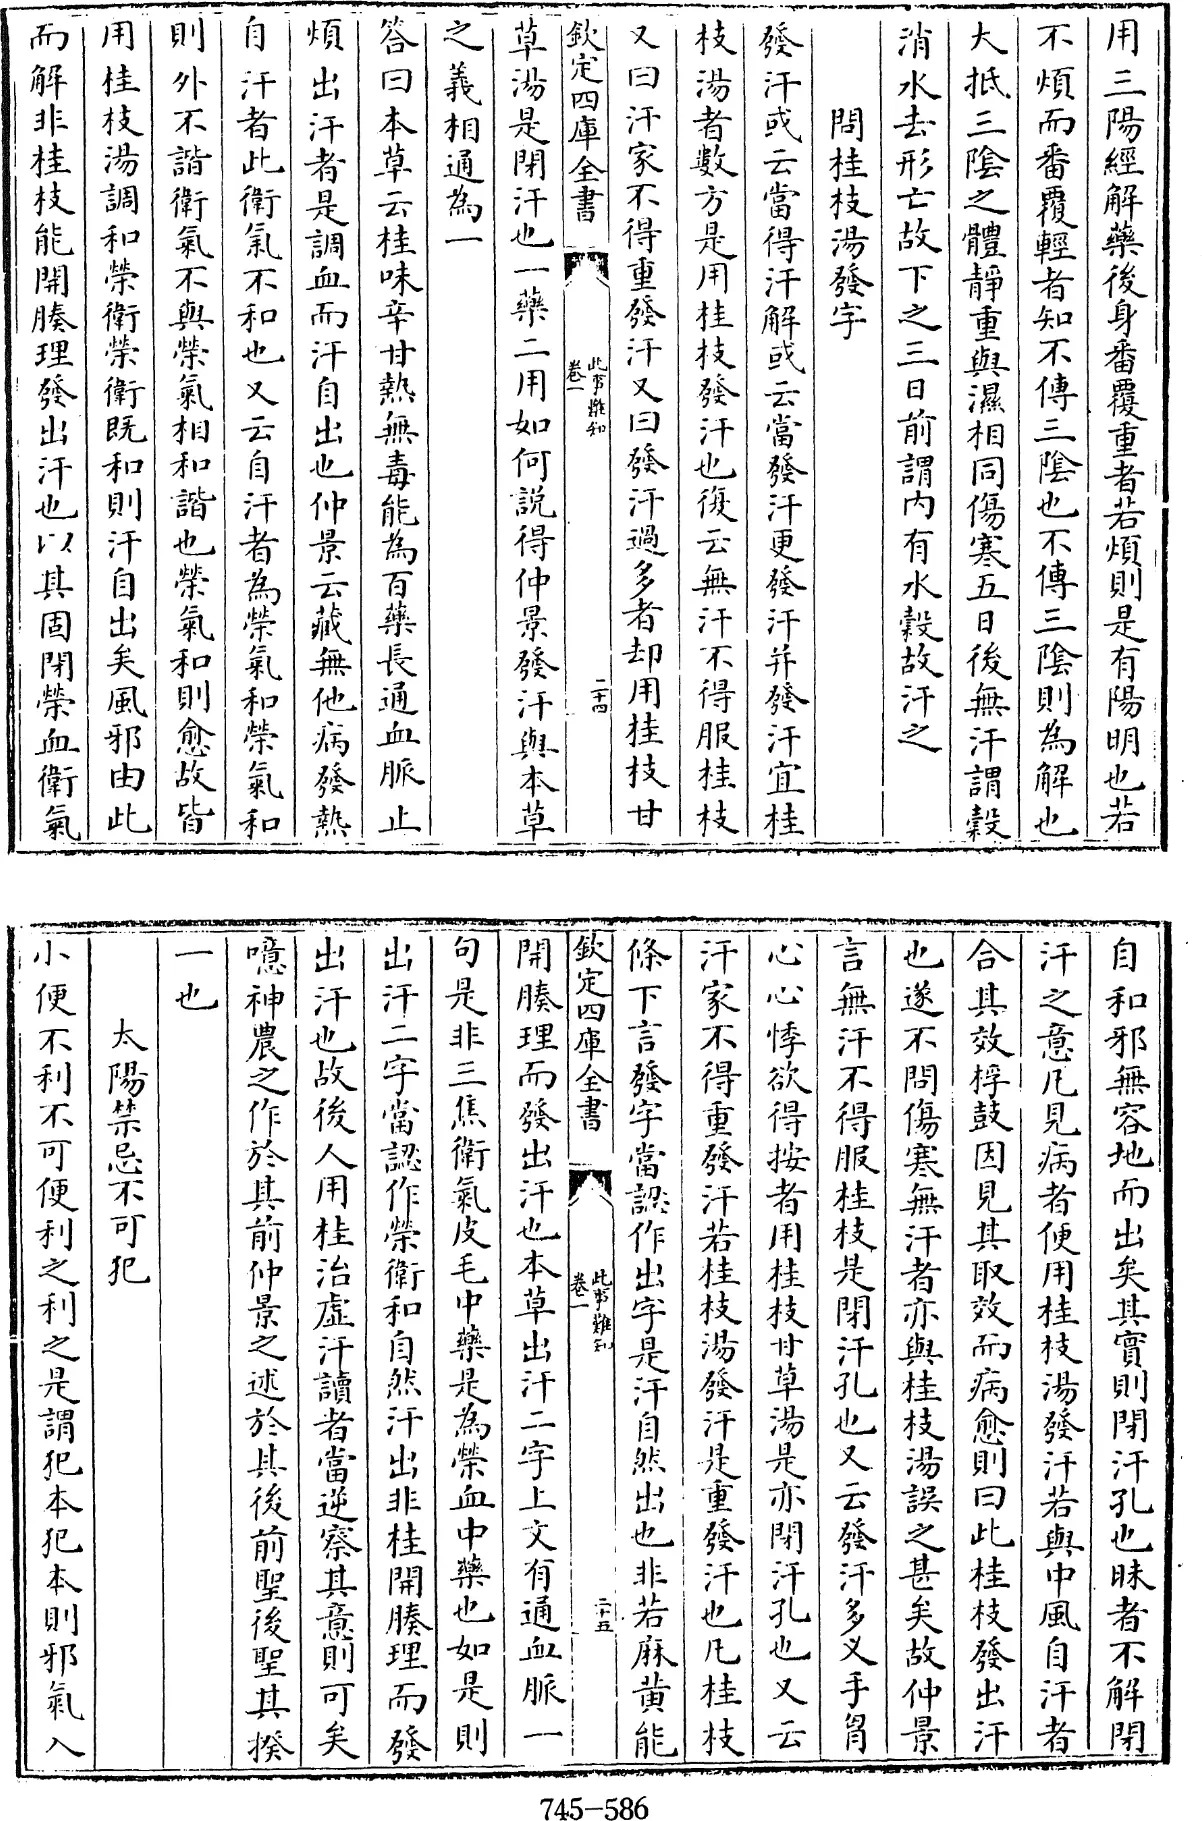 用三陽經解藥後身番覆重者若煩則是有陽明也若
不煩而番覆輕者知不傳三隂也不傳三隂則為解也
大抵三隂之體靜重與濕相同傷寒五日後無汗謂穀
消水去形亡故下之三日前謂内有水穀故汗之
問桂枝湯發字
發汗或云當得汗解或云當發汗更發汗并發汗宜桂
枝湯者數方是用桂枝發汗也復云無汗不得服桂枝
又曰汗家不得重發汗又曰發汗過多者却用桂枝甘
欽定四庫全書
此事難知
卷一
二十四
草湯是閉汗也一藥二用如何說得仲景發汗與本草
之義相通為一
答曰本草云桂味辛甘熱無毒能為百藥長通血脈止
煩出汗者是調血而汗自出也仲景云藏無他病發熱
自汗者此衛氣不和也又云自汗者為榮氣和榮氣和
則外不諧衛氣不與榮氣相和諧也榮氣和則愈故皆
用桂枝湯調和榮衛榮衛既和則汗自出矣風邪由此
而解非桂枝能開腠理發出汗也以其固閉榮血衛氣
自和邪無容地而出矣其實則閉汗孔也昧者不解閉
汗之意凡見病者便用桂枝湯發汗若與中風自汗者
合其效桴鼓因見其取效而病愈則曰此桂枝發出汗
也遂不問傷寒無汗者亦與桂枝湯誤之甚矣故仲景
言無汗不得服桂枝是閉汗孔也又云發汗多叉手冒
心心悸欲得按者用桂枝甘草湯是亦閉汗孔也又云
汗家不得重發汗若桂枝湯發汗是重發汗也凡桂枝
條下言發字當認作出字是汗自然出也非若麻黄能
欽定四庫全書
此事難知
卷一
二十五
開腠理而發出汗也本草出汗二字上文有通血脈一
句是非三焦衛氣皮毛中藥是為榮血中藥也如是則
出汗二字當認作榮衛和自然汗出非桂開腠理而發
出汗也故後人用桂治虚汗讀者當逆察其意則可矣
噫神農之作於其前仲景之述於其後前聖後聖其揆
一也
太陽禁忌不可犯
小便不利不可便利之利之是謂犯本犯本則邪氣入
745-586